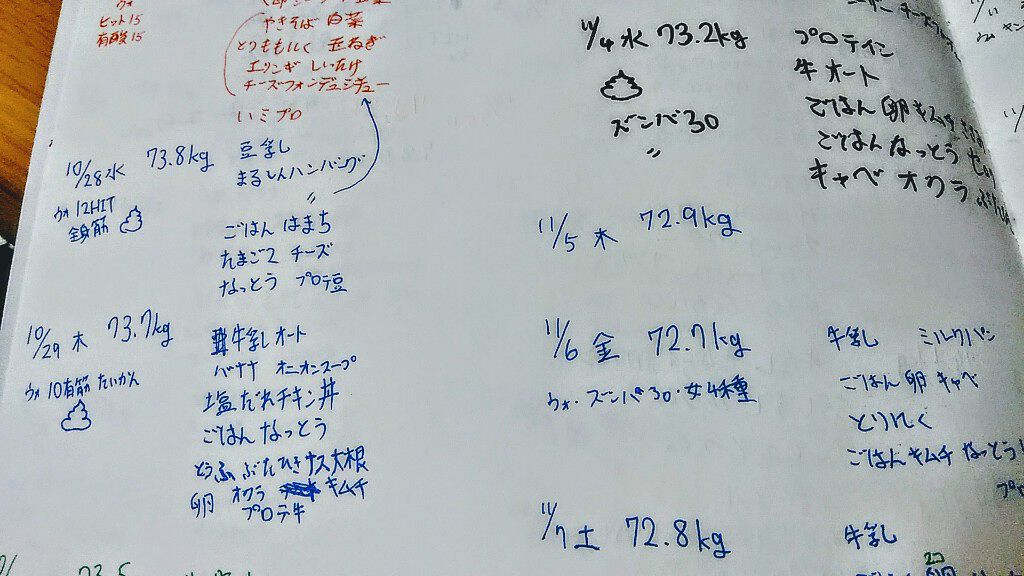 ヒット15
有酸15
やきそば 白菜
とりももにく 玉ねぎ
エリンギ しいたけ
チーズフォンデュシチュー
いミプロ
10/28 水 73.8kg 豆乳
まるしんハンバーグ
〃
ウォ 12HIT
全身筋
ごはん はまち
たまご2 チーズ
なっとう プロテ豆
10/29 木 73.7kg 牛乳 オート
バナナ オニオンスープ
ウォ 10有筋 たいかん
塩だれチキン丼
ごはん なっとう
とうふ ぶたひき ナス 大根
卵 オクラ キムチ
プロテ牛
73.5
11/4 水 73.2kg プロテイン
牛 オート
ごはん 卵
ズンバ30
〃
ごはん なっとう
キャベ オクラ
11/5 木 72.9kg
11/6 金 72.7kg 牛乳 ミルクパン
ウォ・ズンバ30・女4種
ごはん 卵 キャベ
とりにく
ごはん キムチ なっとう
プロ
11/7 土 72.8kg 牛乳